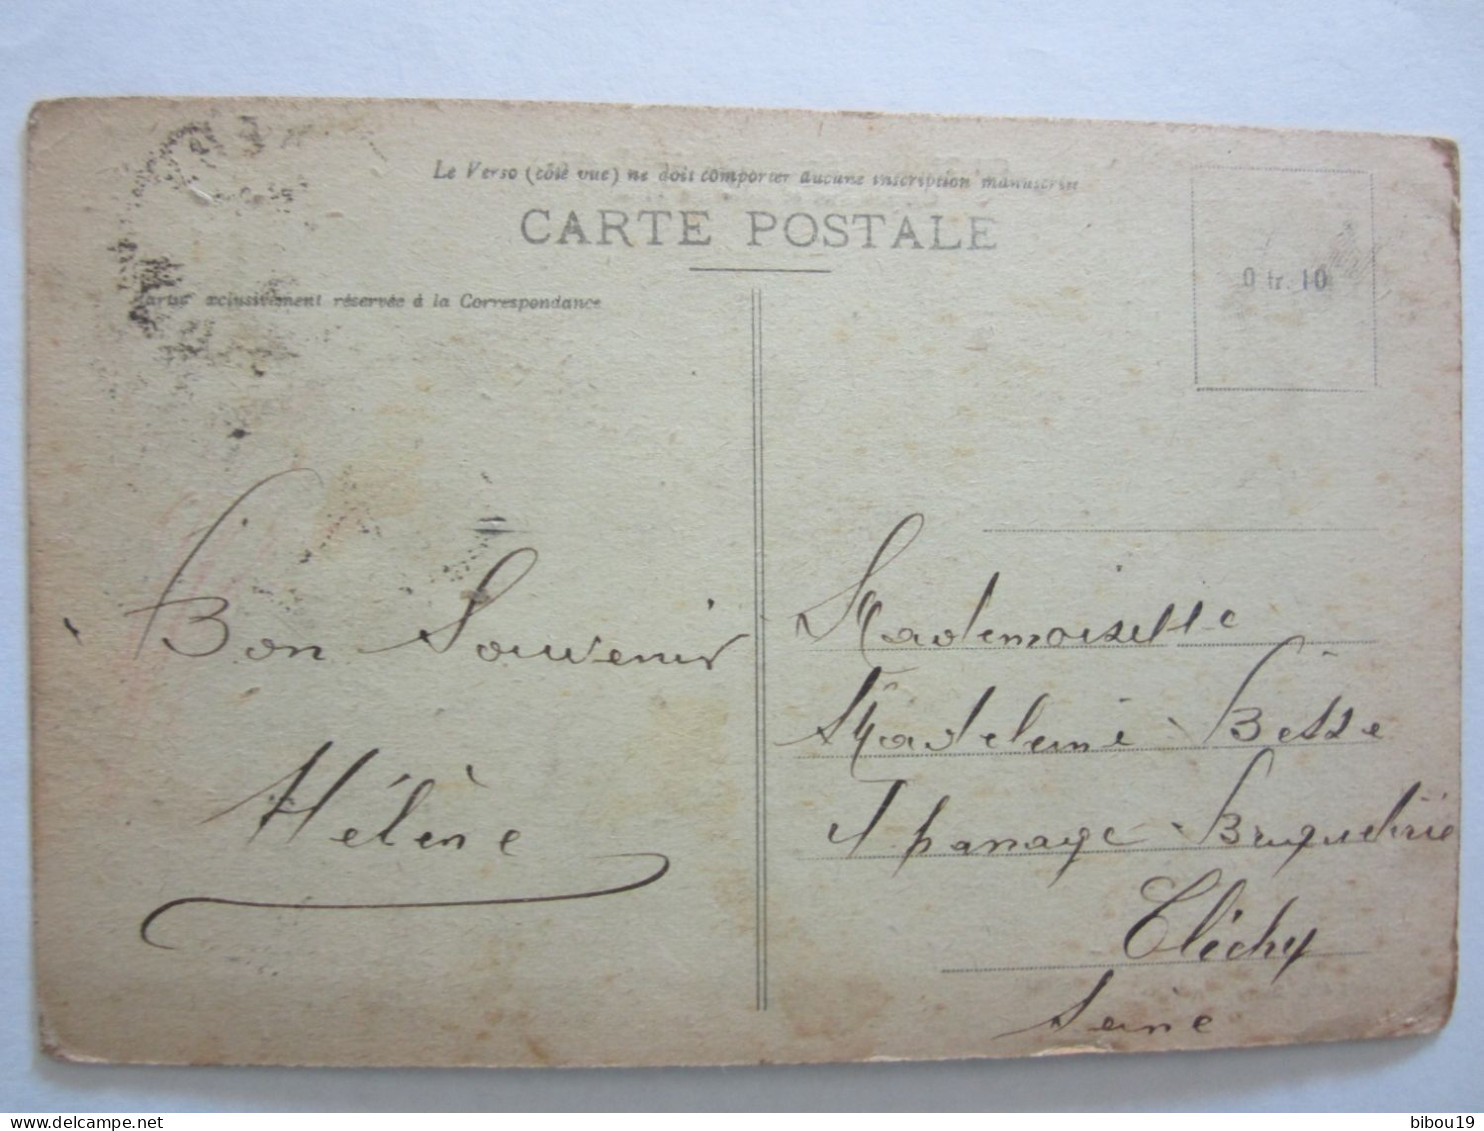 Le Verso (côté vue) ne doit comporter aucune inscription manuscrite
CARTE POSTALE
Partie exclusivement réservée à la Correspondance
0 fr. 10
Bon Souvenir
Hélène
Mademoiselle
Madeleine Besse
Clichy
Seine
delcampe.net
bibou19